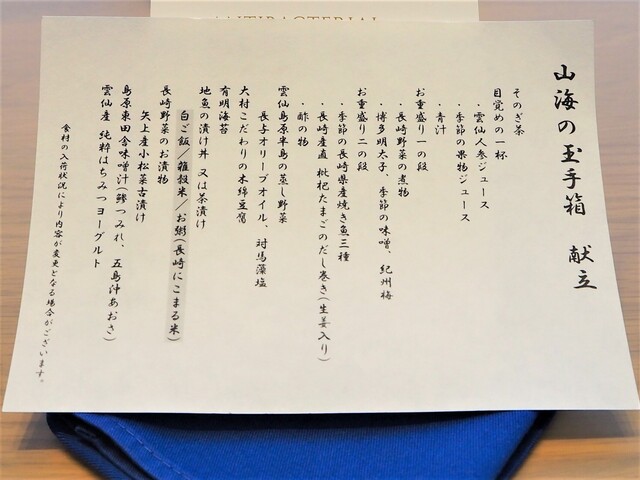 ANTIBACTERIAL
山海の玉手箱　献立
そのぎ茶
目覚めの一杯
・雲仙人参ジュース
・季節の果物ジュース
・青汁
お重盛り一の段
・長崎野菜の煮物
・博多明太子、季節の味噌、紀州梅
お重盛り二の段
・季節の長崎県産焼き魚三種
・長崎産直 枇杷たまごのだし巻き(生姜入り)
・酢の物
雲仙島原半島の蒸し野菜
長与オリーブオイル、対馬藻塩
大村こだわりの木綿豆腐
有明海苔
地魚の漬け丼 又は茶漬け
白ご飯／雑穀米／お粥(長崎にこまる米)
長崎野菜のお漬物
矢上産小松菜古漬け
島原東田舎味噌汁(鯵つみれ、五島沖あおさ)
雲仙産 純粋はちみつヨーグルト
食材の入荷状況により内容が変更となる場合がございます。